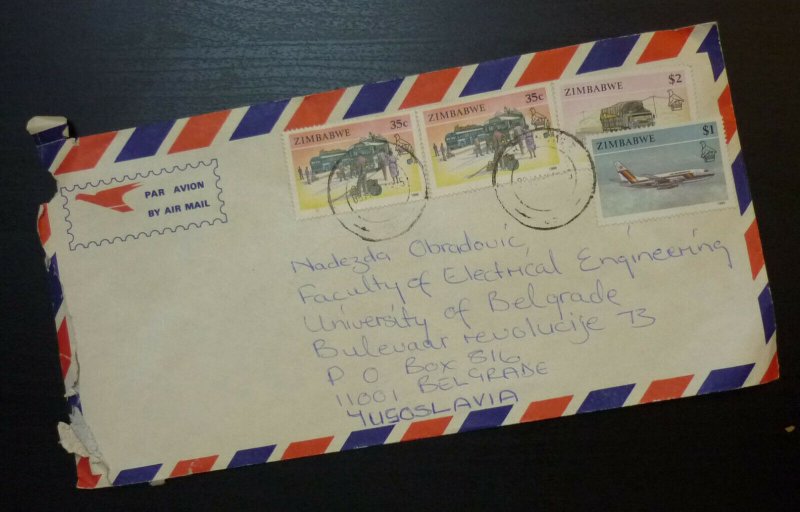 ZIMBABWE 35c
ZIMBABWE 35c
ZIMBABWE $2
ZIMBABWE $1
PAR AVION
BY AIR MAIL
Nadezda Obradović,
Faculty of Electrical Engineering
University of Belgrade
Bulevaar revolucije B
P O BOX 816
11001 BELGRADE
YUGOSLAVIA